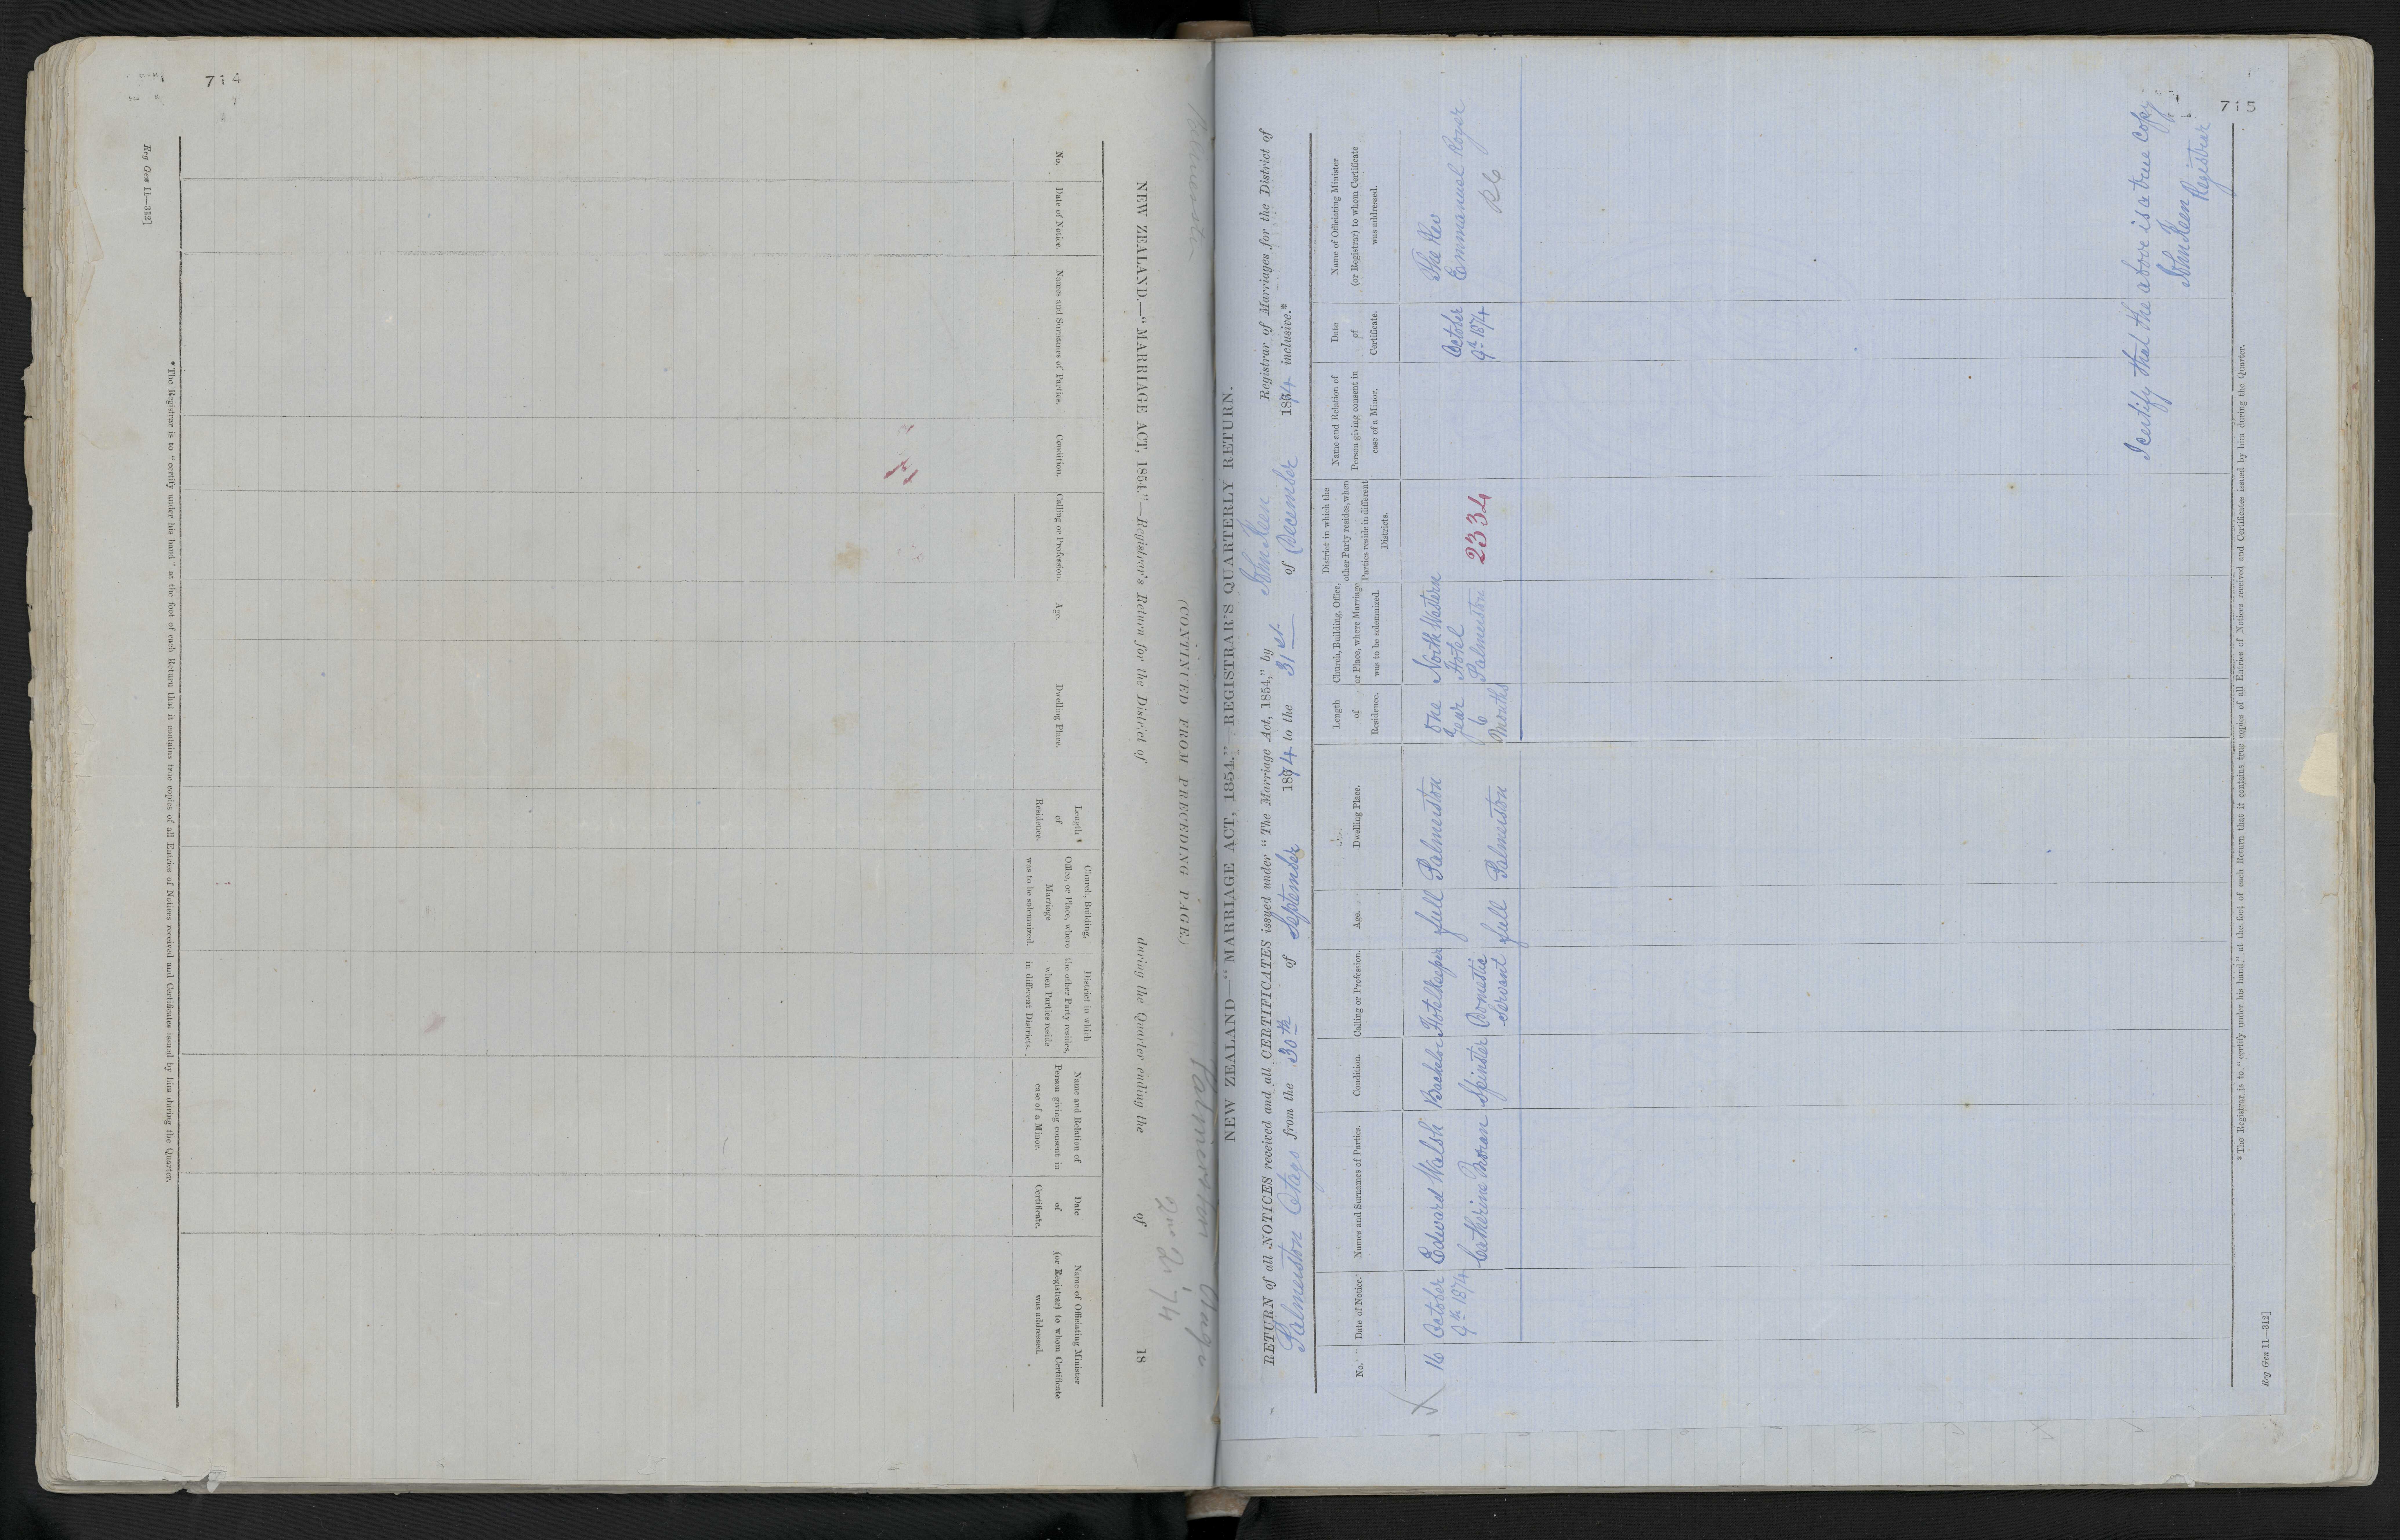 714
Reg Gen 11—312]
Palmerston Otago
Dec Qr 74
(CONTINUED FROM PRECEDING PAGE.)
NEW ZEALAND.—"MARRIAGE ACT, 1854."—Registrar's Return for the District of during the Quarter ending the of 18
No.
Date of Notice.
Names and Surnames of Parties.
Condition.
Calling or Profession.
Age.
Dwelling Place.
Length
of
Residence.
Church, Building,
Office, or Place, where
Marriage
was to be solemnized.
District in which
the other Party resides,
when Parties reside
in different Districts.
Name and Relation of
Person giving consent in
case of a Minor.
Date
of
Certificate.
Name of Officiating Minister
(or Registrar) to whom Certificate
was addressed.
*The Registrar is to "certify under his hand" at the foot of each Return that it contains true copies of all Entries of Notices received and Certificates issued by him during the Quarter.
715
NEW ZEALAND—"MARRIAGE ACT, 1854."—REGISTRAR'S QUARTERLY RETURN.
RETURN of all NOTICES received and all CERTIFICATES issued under "The Marriage Act, 1854," by John Keen Registrar of Marriages for the District of
Palmerston Otago from the 30th of September 1874 to the 31st of December 1874 inclusive.*
No.
Date of Notice.
Names and Surnames of Parties.
Condition.
Calling or Profession.
Age.
Dwelling Place.
Length
of
Residence.
Church, Building, Office,
or Place, where Marriage
was to be solemnized.
District in which the
other Party resides, when
Parties reside in different
Districts.
Name and Relation of
Person giving consent in
case of a Minor.
Date
of
Certificate.
Name of Officiating Minister
(or Registrar) to whom Certificate
was addressed.
16
October
9th 1874
Edward Walsh
Catherine Moran
Bachelor
Spinster
Hotelkeeper
Domestic
Servant
full
full
Palmerston
Palmerston
One
Year
6
Months
North Western
Hotel
Palmerston
2334
October
9th 1874
The Rev
Emmanuel Royer
RC
I certify that the above is a true Copy
John Keen
Registrar
*The Registrar is to "certify under his hand" at the foot of each Return that it contains true copies of all Entries of Notices received and Certificates issued by him during the Quarter.
Reg Gen 11—312]